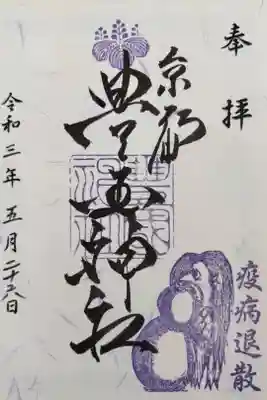 奉拝
京都
豊国神社
豊国神社
令和三年 五月二十六日
疫病退散